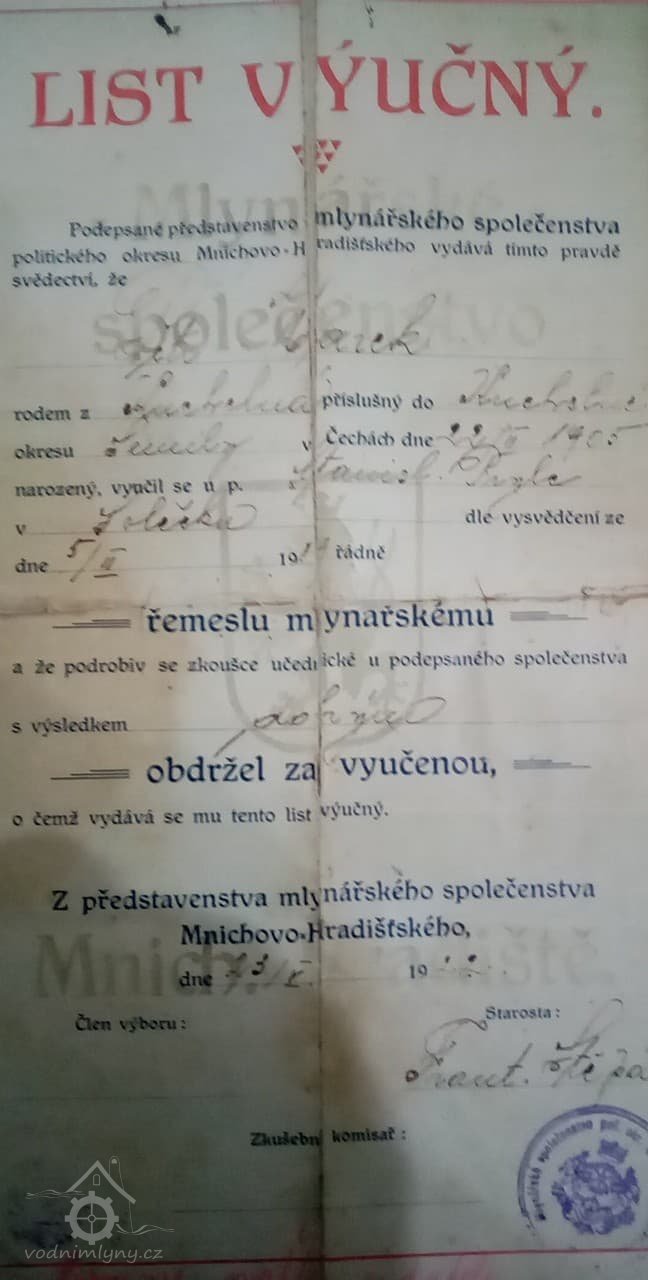 LIST VÝUČNÝ.
Podepsané představenstvo mlynářského společenstva
politického okresu Mnichovo-Hradišťského vydává tímto pravdě
svědectví, že
Marek
rodem z příslušný do
okresu v Čechách dne 22/ 1905
narozený, vyučil se u p. Stanisl.
v dle vysvědčení ze
dne 5/II 19 řádně
řemeslu mlynařskému
a že podrobiv se zkoušce učednické u podepsaného společenstva
s výsledkem
obdržel za vyučenou,
o čemž vydává se mu tento list výučný.
Z představenstva mlynářského společenstva
Mnichovo-Hradišťského,
dne 19
Člen výboru: Starosta:
Frant.
Zkušební komisař:
vodnimlyny.cz